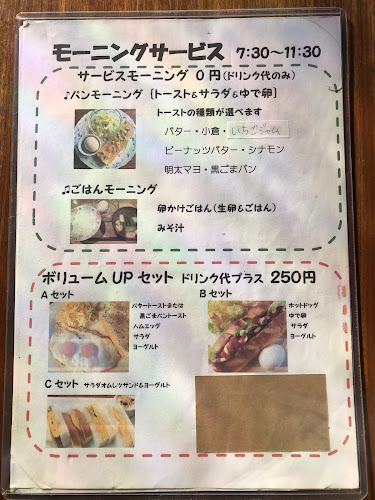 モーニングサービス 7:30～11:30
サービスモーニング 0円(ドリンク代のみ)
♪パンモーニング {トースト&サラダ&ゆで卵}
トーストの種類が選べます
バター・小倉・いちごジャム
ピーナッツバター・シナモン
明太マヨ・黒ごまパン
♫ごはんモーニング
卵かけごはん(生卵&ごはん)
みそ汁
ボリュームUPセット ドリンク代プラス 250円
Aセット
バタートーストまたは
黒ごまパントースト
ハムエッグ
サラダ
ヨーグルト
Bセット
ホットドッグ
ゆで卵
サラダ
ヨーグルト
Cセット サラダオムレツサンド&ヨーグルト